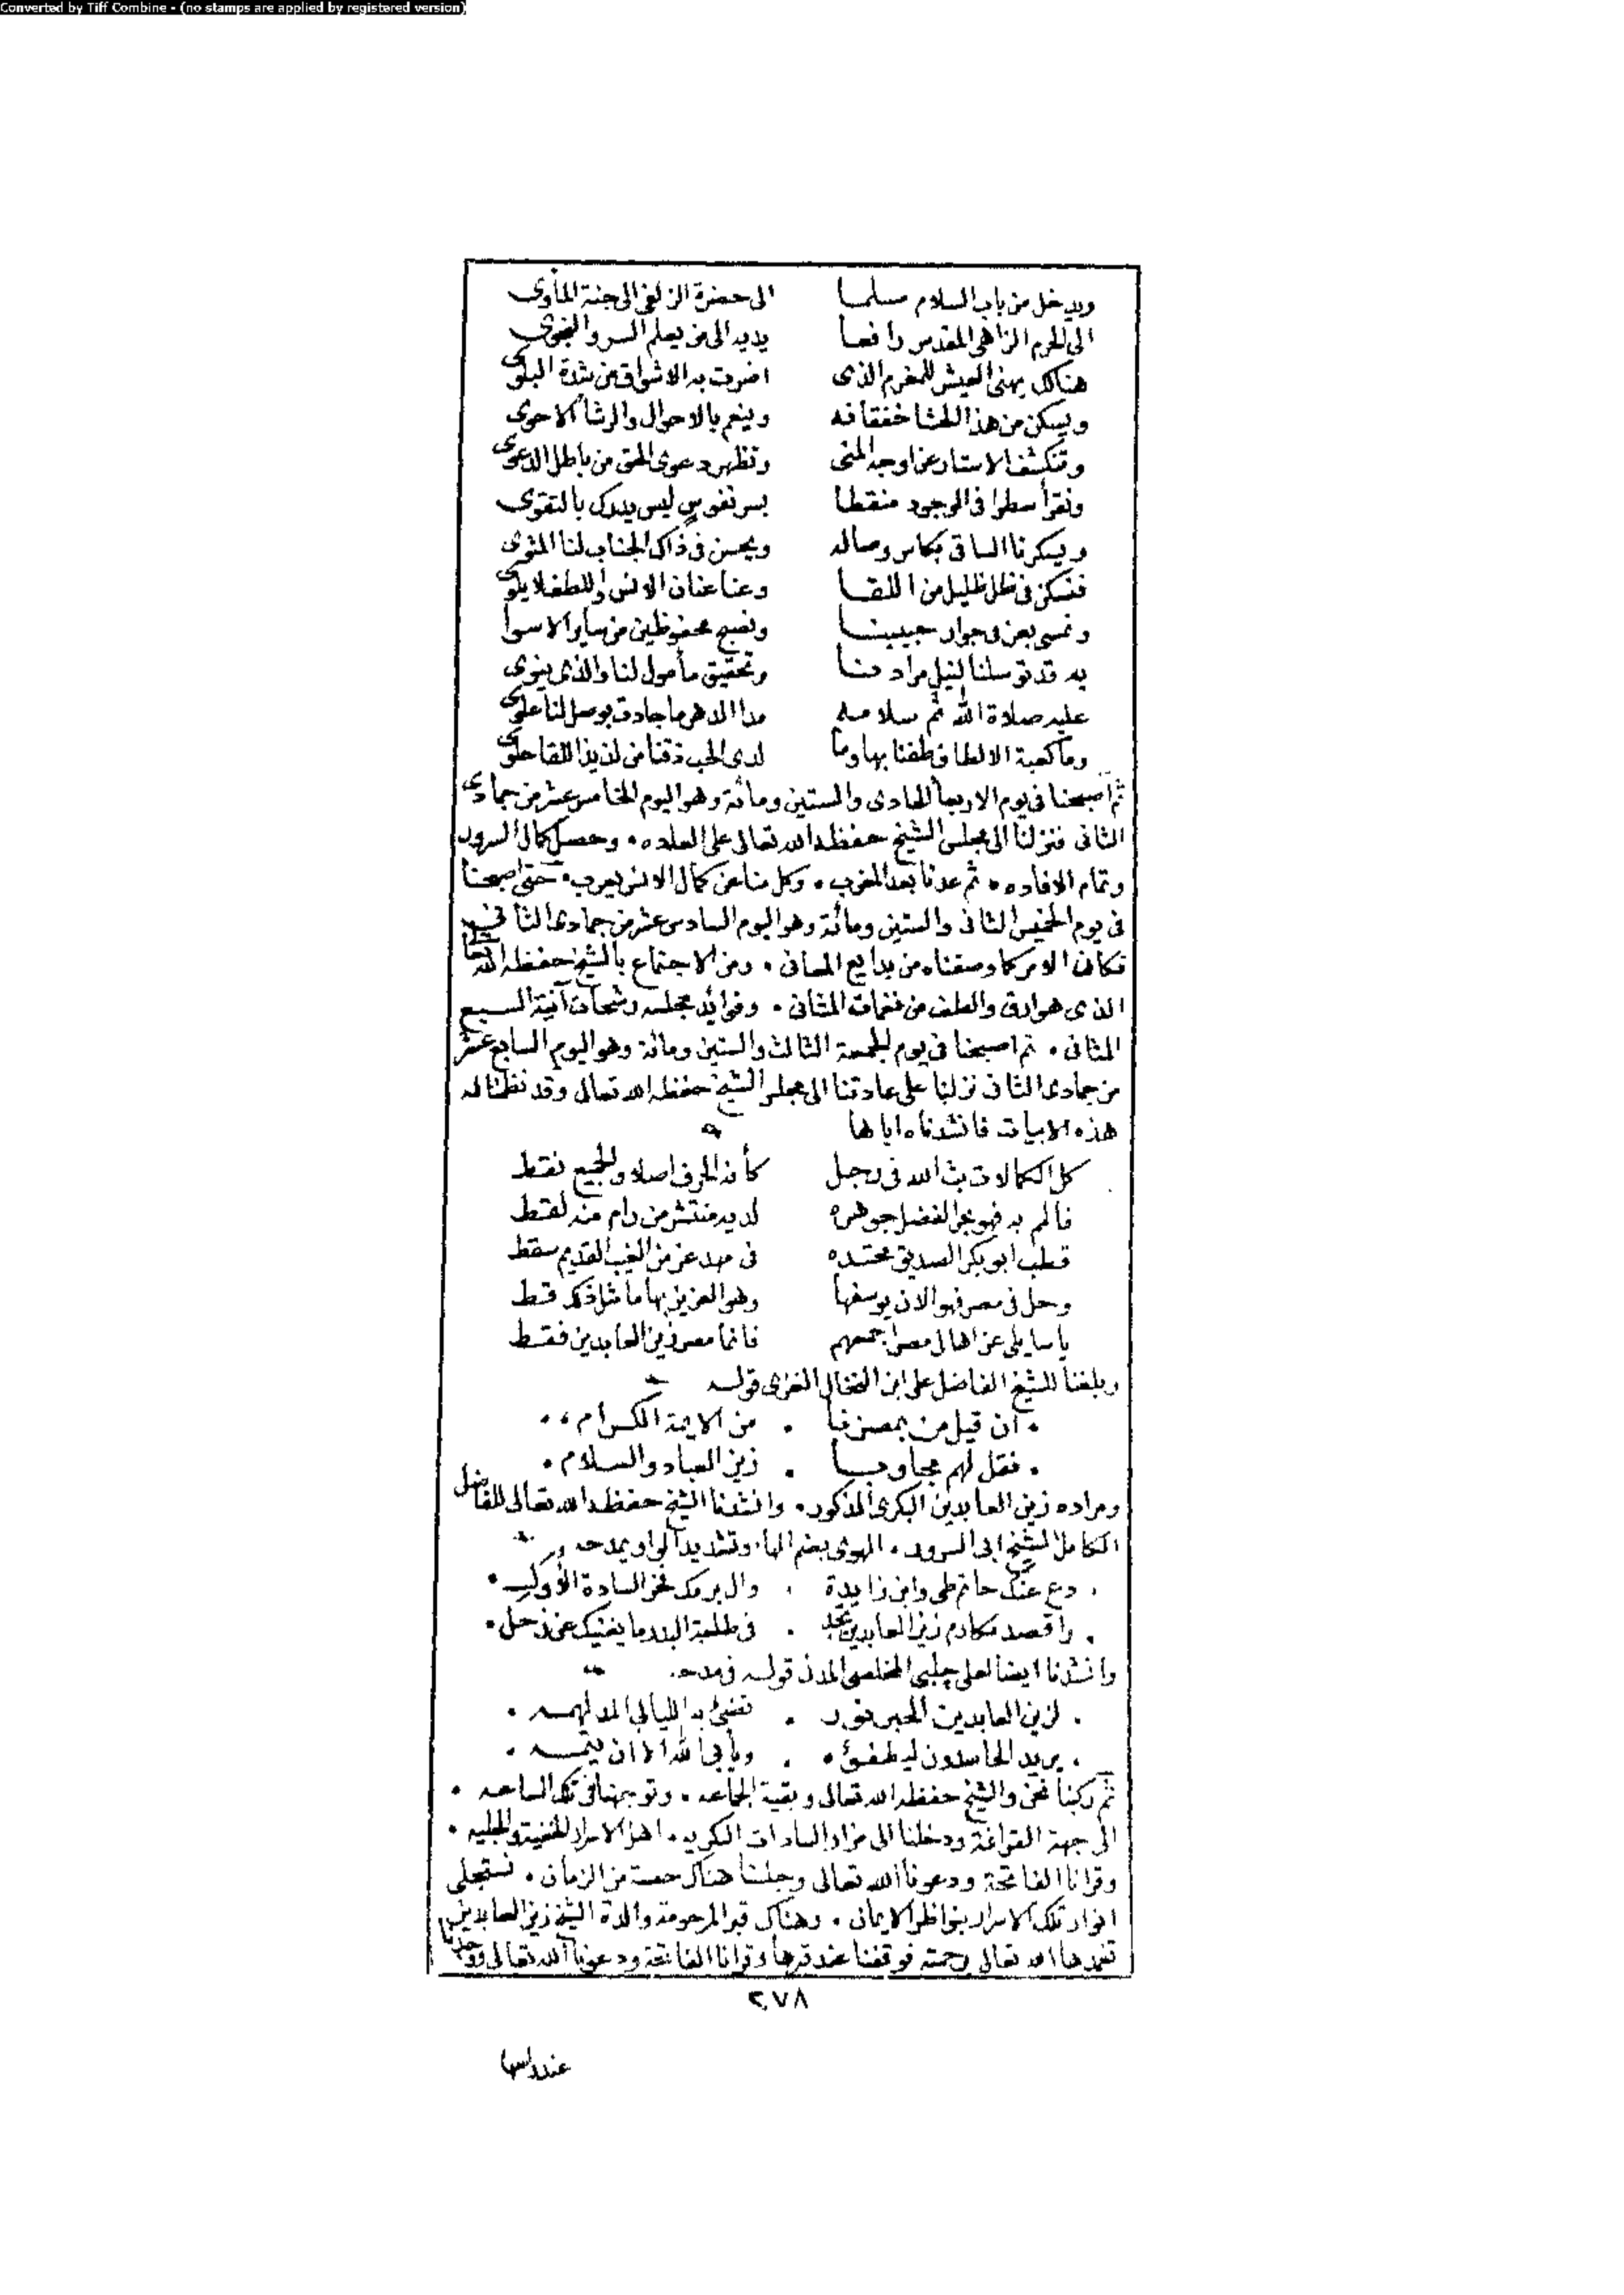 Converted by Tiff Combine - (no stamps are applied by registered version)
ويدخل من باب السلام مسلما الى حضرة الزلفى الى جنة المأوى
الى الحرم الزاهى المقدس رافعا يديه الى من يعلم السر والنجوى
هنالك يهنى العيش للمغرم الذى اضرت به الاشواق من شدة البلوى
ويسكن من هذا الحشا خفقانه وينعم بالاحوال والرشأ الاحوى
وتنكشف الاستار عن اوجه المنى وتظهر دعوى الحق من باطل الدعوى
ونقرأ سطرا فى الوجود منقطا بسر نفوس ليس يدرك بالتقوى
ويسكرنا الساقى بكاس وصاله ويحسن فى ذاك الجناب لنا المثوى
فنسكن فى ظل ظليل من اللقا وعنا عنان الانس واللطف لا يلوى
ونمسى بعز فى جوار حبيبنا ونصبح محفوظين من ساير الاسوا
به قد توسلنا لنيل مرادنا وتحقيق مأمول لنا والذى ينوى
عليه صلاة الله ثم سلامه مدا الدهر ما جادت بوصل لنا علوى
وما كعبة الالطاف طفنا بها وما لدى الحب ذقنا من لذيذ اللقا حلوى
ثم اصبحنا فى يوم الاربعا الحادى والستين ومائة وهو اليوم الخامس عشر من جمادى
الثانى فنزلنا الى مجلس الشيخ حفظه الله تعالى على العاده . وحصل كمال السرور
وتمام الافاده . ثم عدنا بعد المغرب . وكل منا عن كمال الانس يعرب . حتى اصبحنا
فى يوم الخميس الثانى والستين ومائة وهو اليوم السادس عشر من جمادى الثانى
فكان الامر كما وصفناه من بدايع المعانى . ومن الاجتماع بالشيخ حفظه الله تعالى
الذى هو ارق والطف من نغمات المثانى . وفوائد مجلسه رشحات آنية السبع
المثانى . ثم اصبحنا فى يوم الجمعة الثالث والستين ومائة وهو اليوم السابع عشر
من جمادى الثانى نزلنا على عادتنا الى مجلس الشيخ حفظه الله تعالى وقد نظمنا له
هذه الابيات فانشدناه اياها
كل الكمالات بث الله فى رجل كأنه الحرف اصلا والجميع نقط
فالمم به فهو بحر الفضل جوهره لديه منتشر من رام منه لقط
قطب ابو بكر الصديق محتده فى مهد عز من الغيب القديم سقط
وحل فى مصر فهو الان يوسفها وهو العزيز بها ما مثل ذلك قط
يا سايلى عن اهالى مصر اجمعهم فانما مصر زين العابدين فقط
وبلغنا للشيخ الفاضل على ابن الغزى قوله
. ان قيل من بمصرنا . من الايمة الكرام .
. فقل لهم مجاوبا . زين العباد والسلام .
ومراده زين العابدين البكرى المذكور . وانشدنا الشيخ حفظه الله تعالى للفاضل
الكامل الشيخ ابى السرور . الهوى بضم الها وتشديد الواو يمدحه
. دع عنك حاتم طى وابن زايدة . وال برمك فخر السادة الاول .
. واقصد مكارم زين العابدين تجد . فى طلعة البدر ما يغنيك عن زحل .
وانشدنا ايضا لعلى چلبى المخلصى المدنى قوله فى مدحه
. لزين العابدين الحبر نور . تضئ به الليالى المدلهمه .
. يريد الحاسدون ليطفئوه . ويأبى الله الا ان يتمه .
ثم ركبنا نحن والشيخ حفظه الله تعالى وبقية الجماعه . وتوجهنا فى تلك الساعه .
الى جهة القرافة ودخلنا الى مزار السادات البكريه . اهل الاسرار الخفية والجليه .
وقرانا الفاتحة ودعونا الله تعالى وجلسنا هناك حصة من الزمان . نستجلى
انوار تلك الاسرار بنواظر الايمان . وهناك قبر المرحومة والدة الشيخ زين العابدين
تغمدها الله تعالى برحمته فوقفنا عند قبرها وقرانا الفاتحة ودعونا الله تعالى ووجدنا
٢٧٨
عند راسها